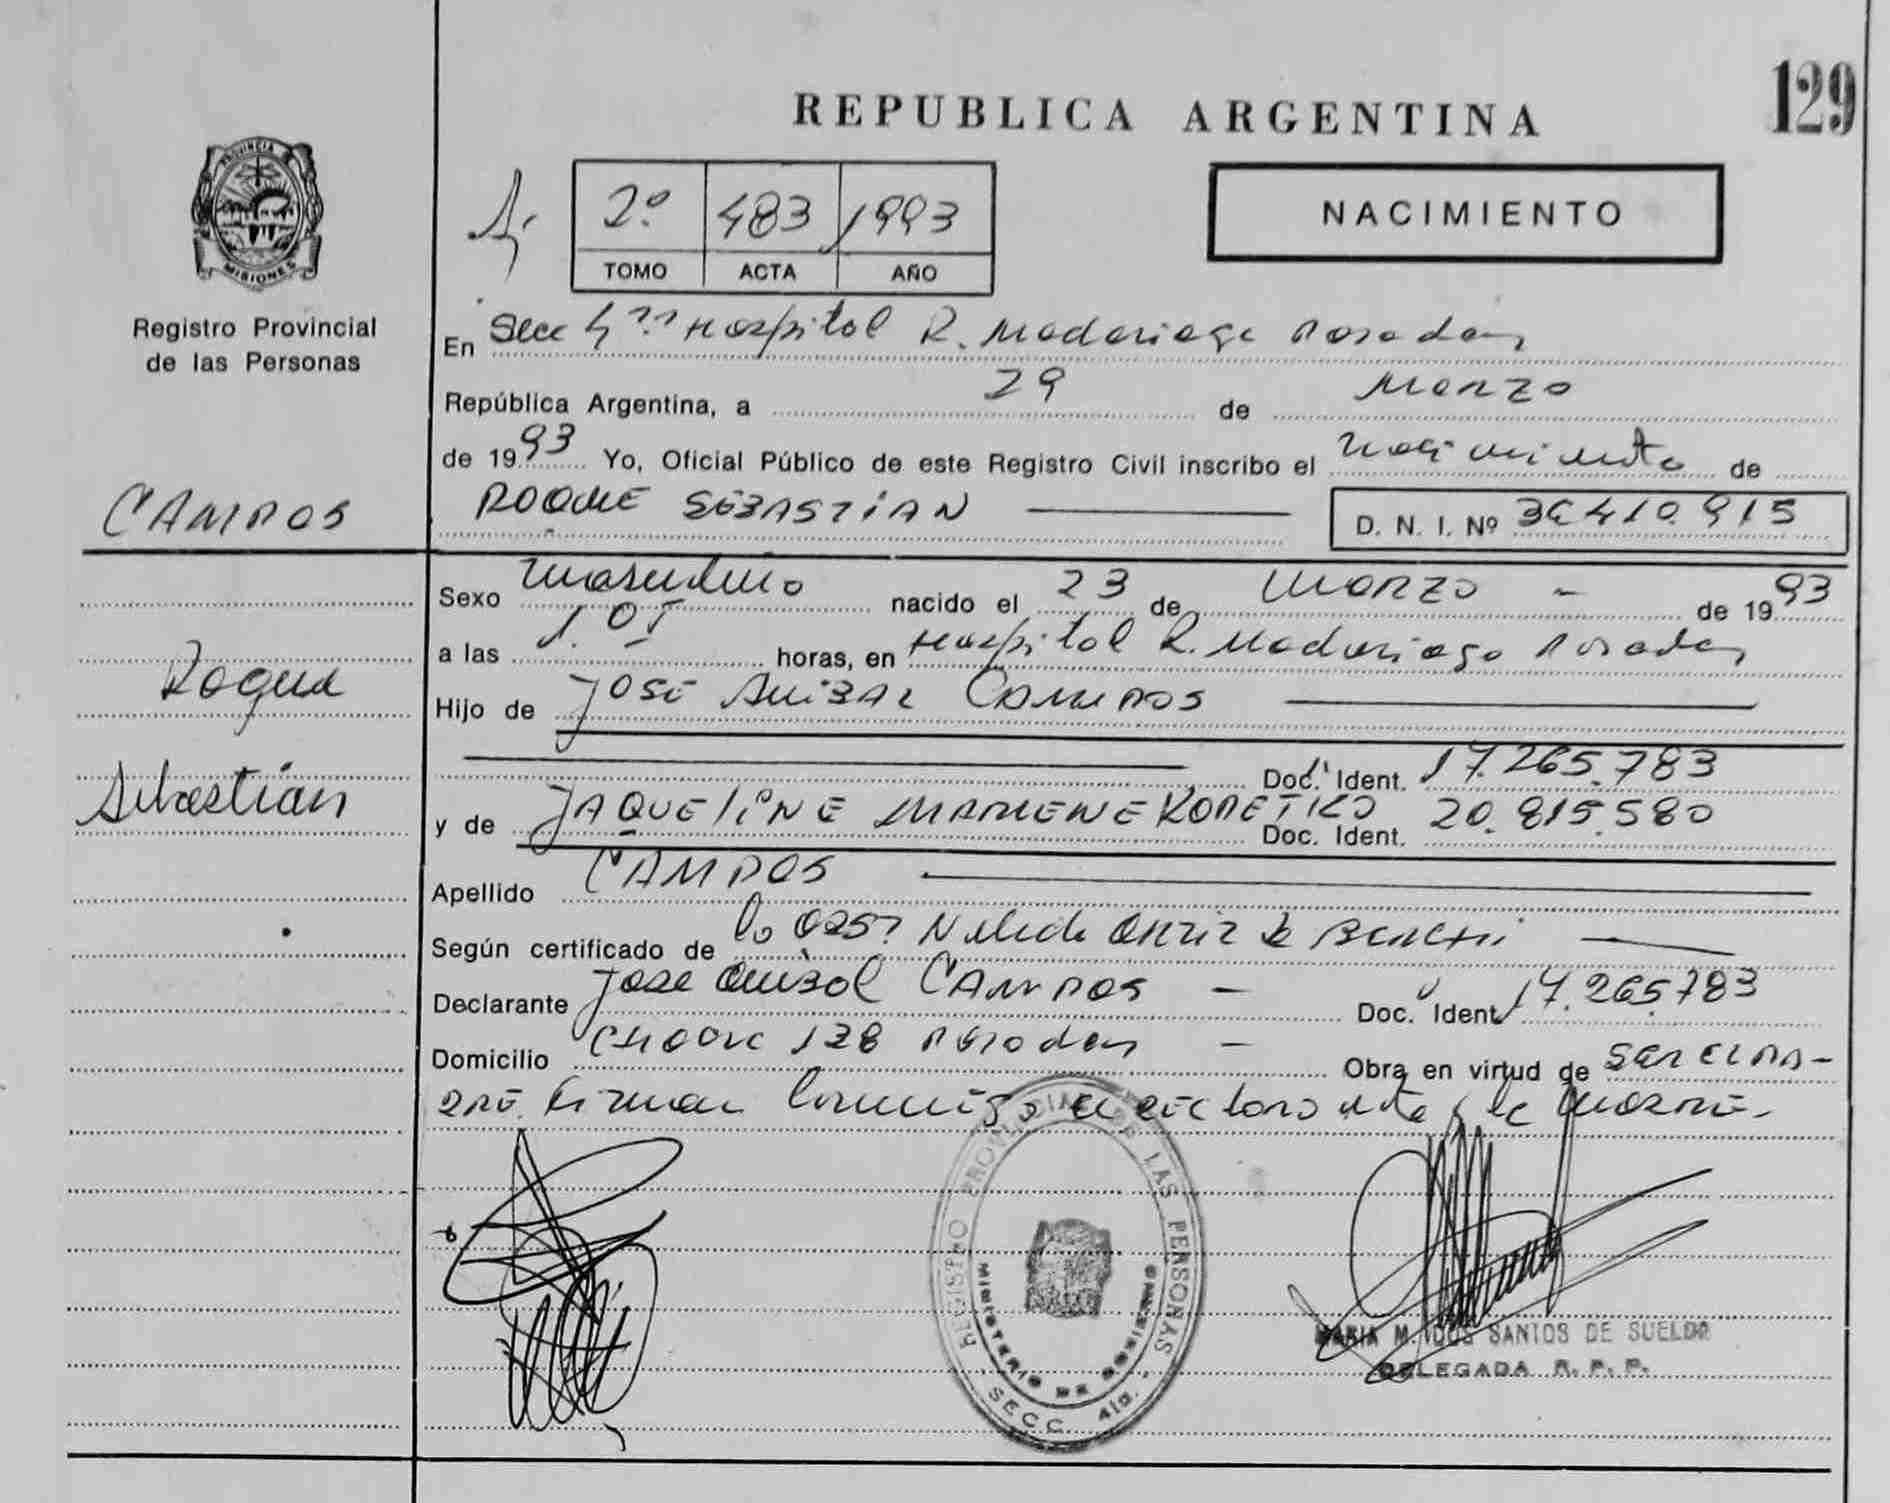 129
REPUBLICA ARGENTINA
PROVINCIA DE
MISIONES
Registro Provincial
de las Personas
2º 483 1993
TOMO ACTA AÑO
NACIMIENTO
En Secc 4ta Hospital R. Madariaga Posadas
República Argentina, a 29 de Marzo
de 1993 Yo, Oficial Público de este Registro Civil inscribo el nacimiento de
CAMPOS
ROQUE SEBASTIAN D. N. I. Nº 410.915
Sexo Masculino nacido el 23 de Marzo - de 1993
a las 1. horas, en Hospital R. Madariaga Posadas
Roque
Hijo de JOSÉ ANIBAL CAMPOS
Doc. Ident. 17.265.783
Sebastián
y de JAQUELINE MARLENE Doc. Ident. 20.815.580
Apellido CAMPOS
Según certificado de la Obst Nelida Ortiz de
Declarante José Anibal CAMPOS - Doc. Ident 17.265.783
Domicilio 138 Posadas - Obra en virtud de
Firman conmigo el declarante y la madre.-
REGISTRO PROVINCIAL DE LAS PERSONAS
MINISTERIO DE GOBIERNO
SECC. 4ta.
MARIA M. DOS SANTOS DE SUELDO
DELEGADA R. P. P.